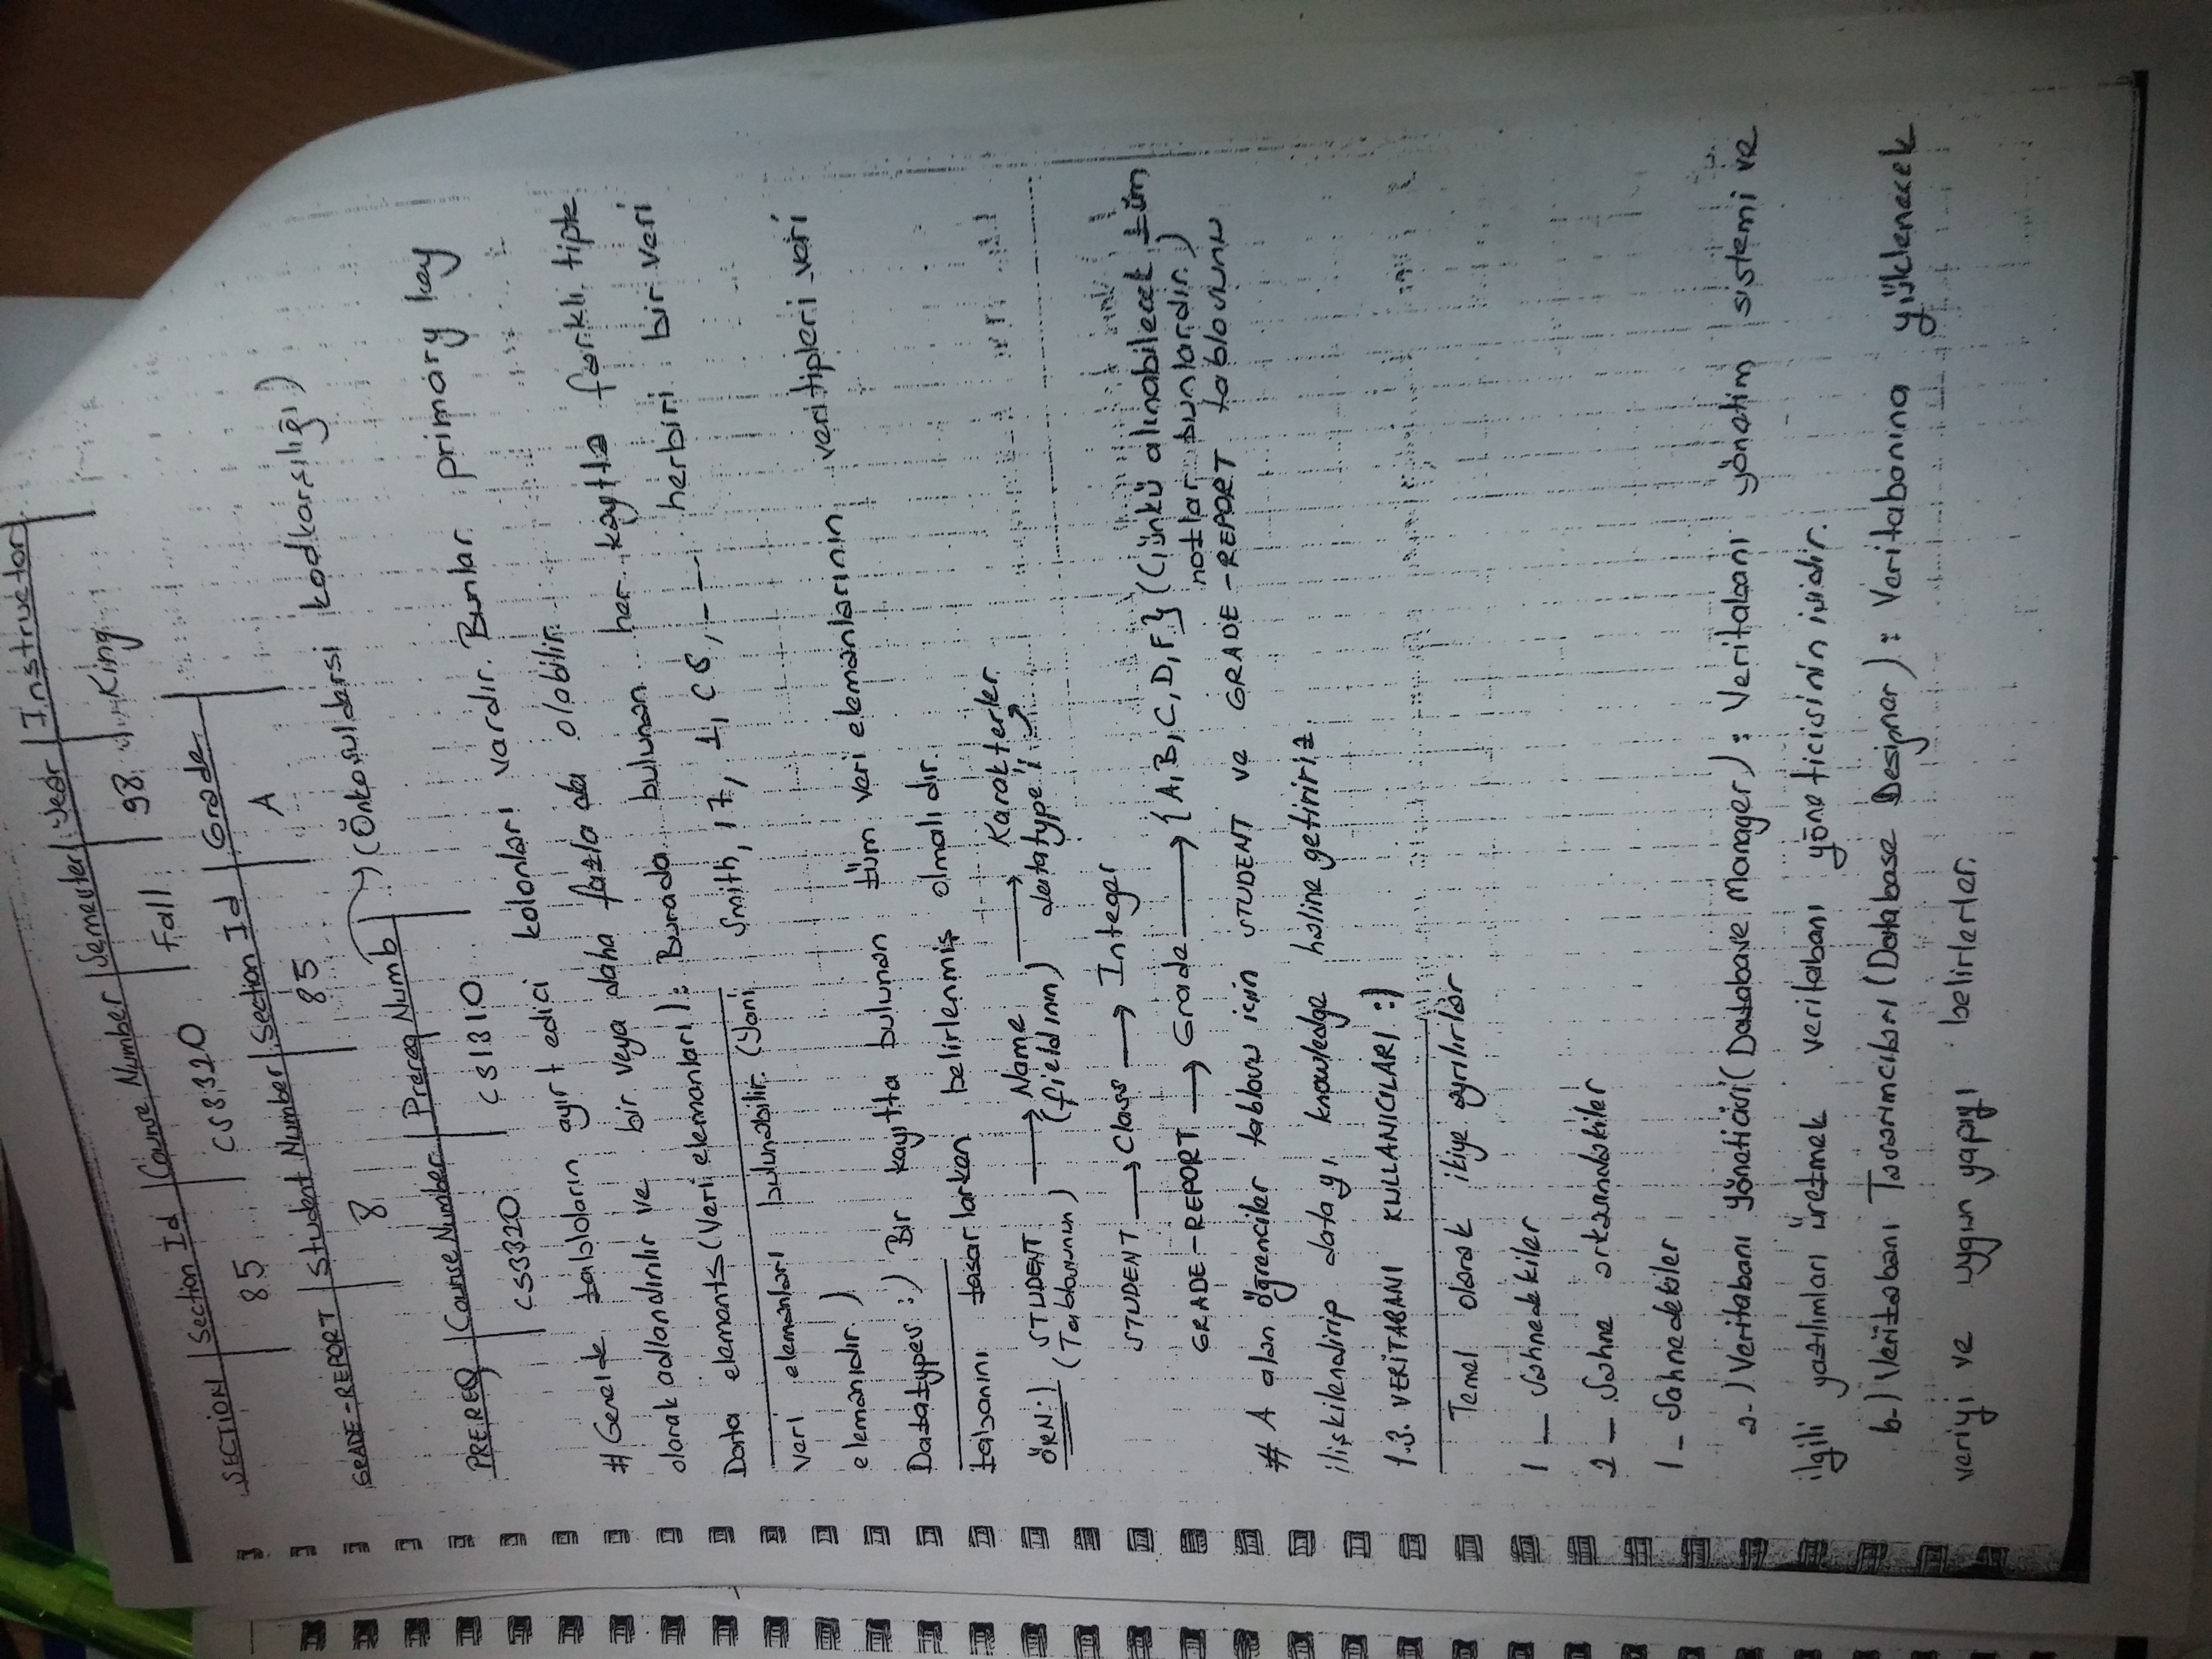 SECTİON | Section Id | Course Number | Semester | Year | Instructor
85 CS3320 Fall 98 King
GRADE-REPORT | Student Number | Section Id | Grade
8 85 A
PREREQ | Course Number | Prereq Numb → (Önkoşuldersi kodkarşılığı)
CS3320 CS1310
# Genelde tabloların ayırt edici kolonları vardır. Bunlar primary key
olarak adlandırılır ve bir veya daha fazla da olabilir.
Data elements (Veri elemanları): Burada bulunan her kayıtta farklı tipte
veri elemanları bulunabilir. (Yani Smith, 17, 1, CS, --- herbiri bir veri
elemanıdır.)
Datatypes :) Bir kayıtta bulunan tüm veri elemanlarının veritipleri veri
tabanını tasarlarken belirlenmiş olmalıdır.
ÖRN:) STUDENT → Name → Karakterler
(Tablosunun) (fieldının) datatype'i ↗
STUDENT → Class → Integer
GRADE-REPORT → Grade → {A, B, C, D, F} (Çünkü alınabilecek tüm
notlar bunlardır.)
# A alan öğrenciler tablosu için STUDENT ve GRADE-REPORT tablosunu
ilişkilendirip datayı knowledge haline getiririz.
1.3. VERİTABANI KULLANICILARI :)
Temel olarak ikiye ayrılırlar
1 _ Sahnedekiler
2 _ Sahne arkasındakiler
1 - Sahnedekiler
a-) Veritabanı Yöneticisi (Database Manager) : Veritabanı yönetim sistemi ve
ilgili yazılımları üretmek veritabanı yöneticisinin işidir.
b-) Veritabanı Tasarımcıları (Database Designer) : Veritabanına yüklenecek
veriyi ve uygun yapıyı belirlerler.